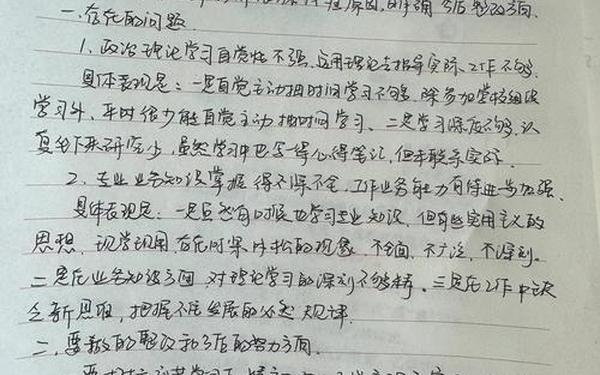 原因,明确了今后整改方向.
一.存在的问题
1.政治理论学习自觉性不强,运用理论去指导实际工作不够.
具体表现是:一是自觉主动抽时间学习不够,除参加学校组织
学习外,平时很少能自觉主动抽时间学习、二是学习深度不够,认
真坐下来研究少,虽然学习中也写一得心得笔记,但未联系实际.
2.专业业务知识掌握得不深不全,工作业务能力有待进一步加强.
具体表现是:一是虽然有时候也学习专业知识,但有些实用主义的
思想,现学现用,存在时紧时松的现象,不全面,不广泛,不深刻.
二是在业务知识方面,对理论学习的深刻不够精.三是在工作中缺
乏新思维,把握不住发展的必然规律.
二.要教的整改和今后的努力方向.